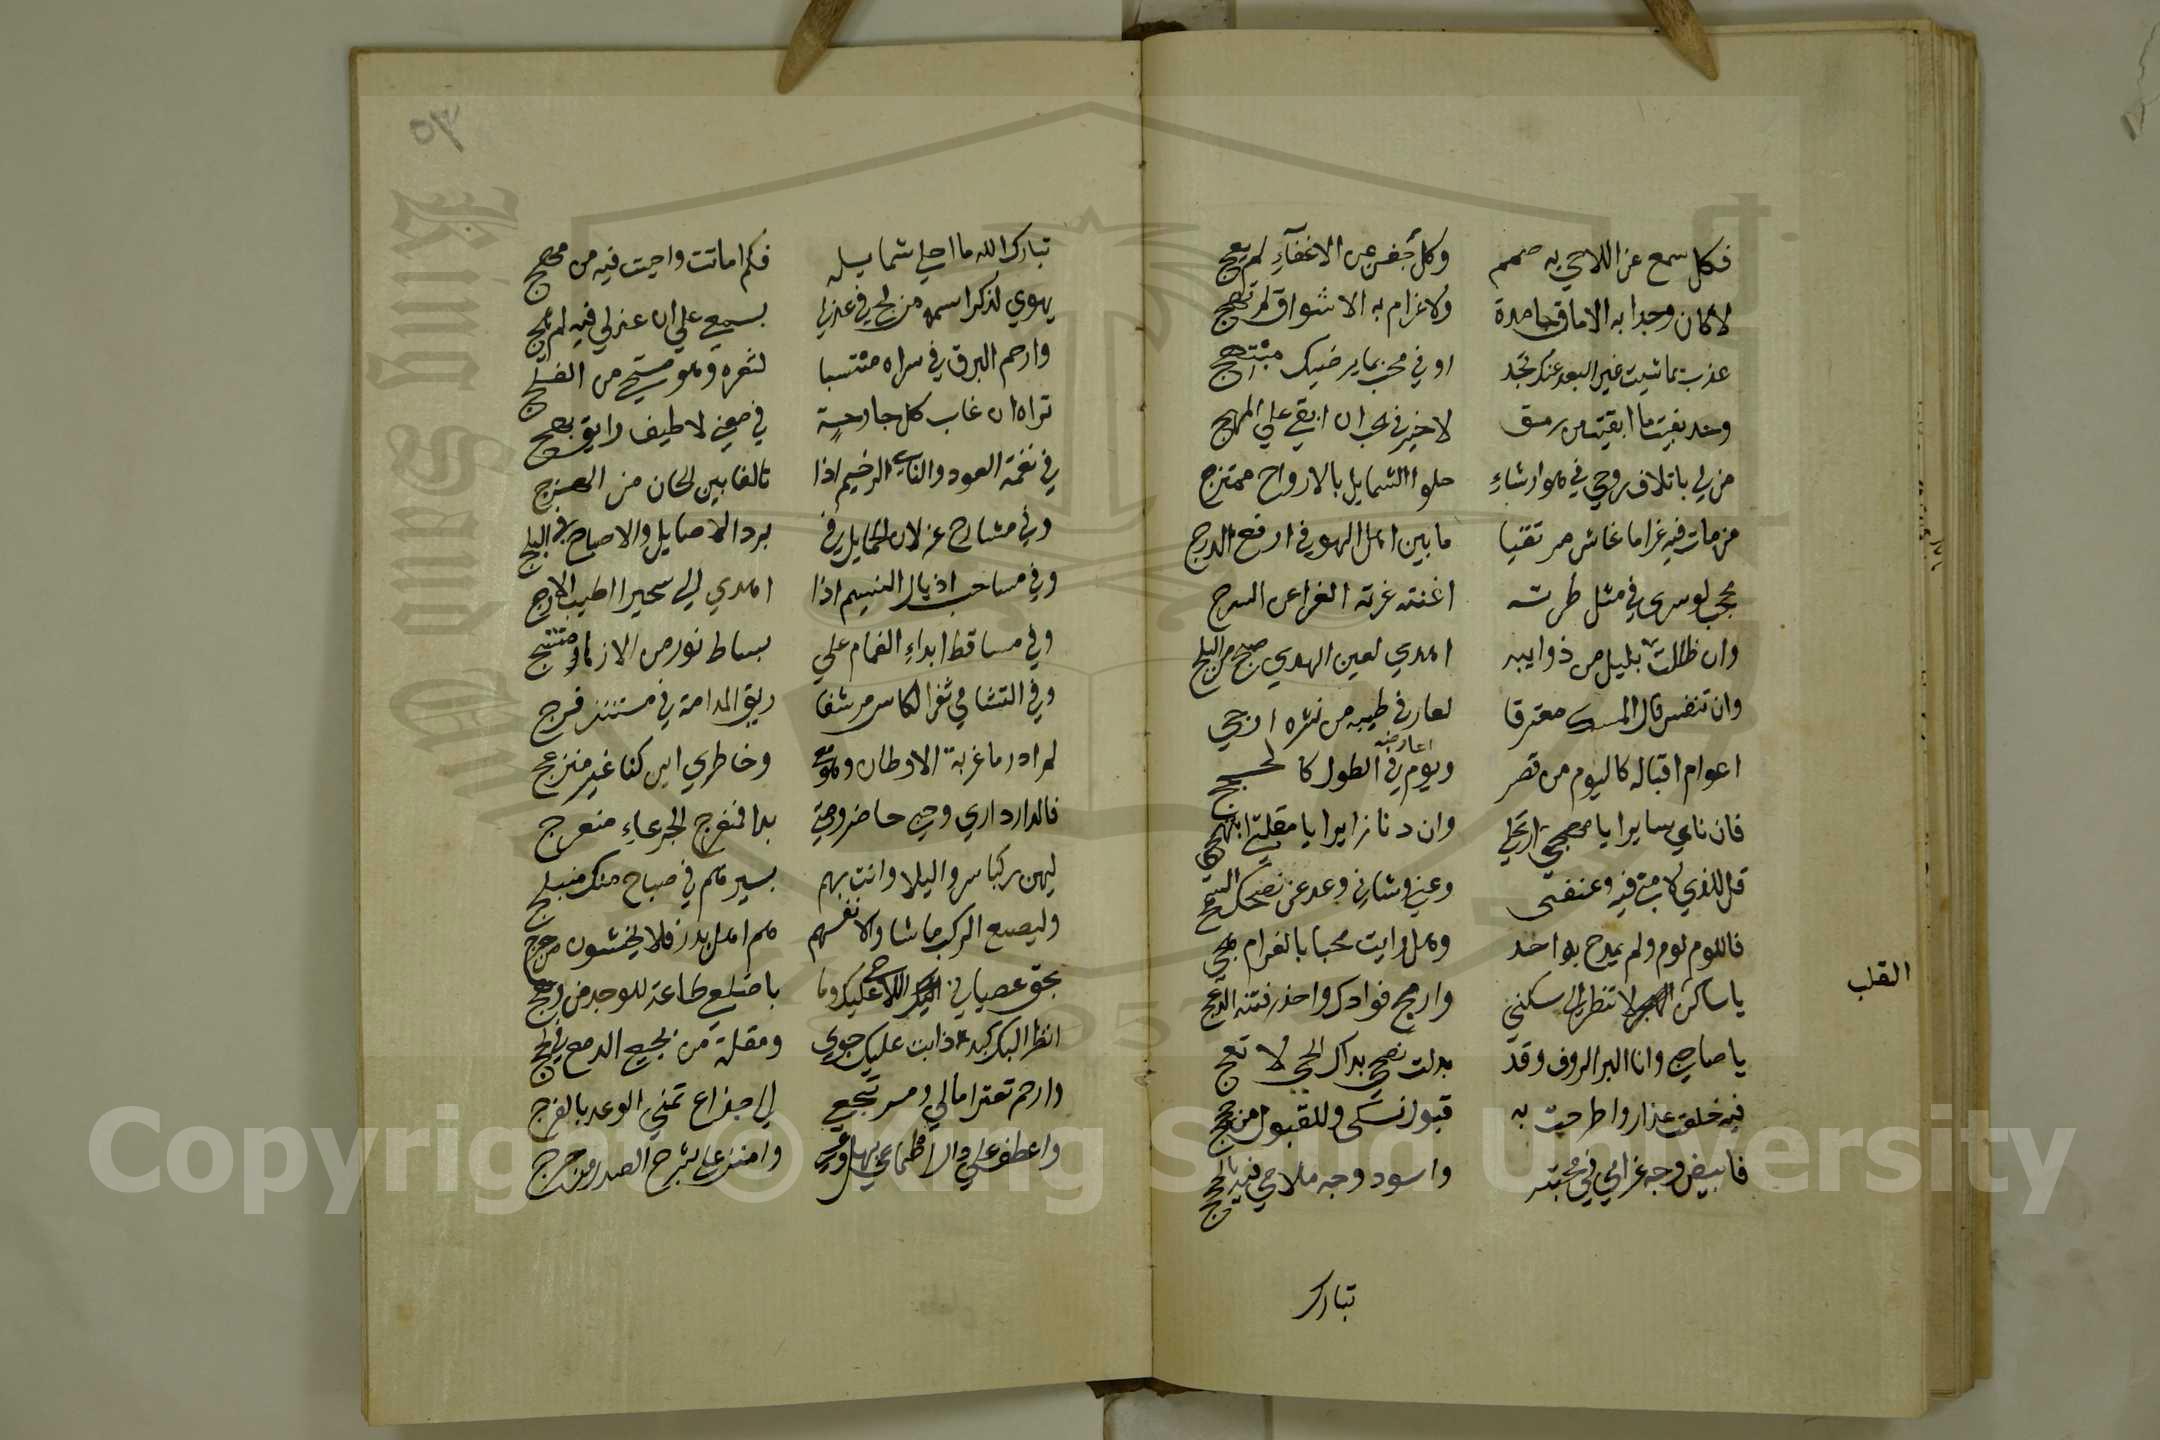 فكل سمع عن اللاحي به صمم وكل جفن عن الاغفآء لم يعج
لا كان وجدا به الاماق جامدة ولا غرام به الاشواق لم تهج
عذب بماشيت غير البعد عنك تجد اوفي محب بما يرضيك مبتهج
وخد بقيت ما ابقيت من رمق لا خير في لحب ان ابقي علي المهج
من لي باتلاف روحي في هوا رشاء حلوا الشمايل بالارواح ممتزج
من مات فيه غراما عاش مرتقيا ما بين اهل الهوي في ارفع الدرج
محجب لو سري في مثل طرته اغنته غرته الغرا عن السرج
وان ظللت بليل من ذوايبه اهدي لعين الهدي صبح من البلج
وان تنفس قال المسك معترفا لعارفي طيبه من نشره ارجي
اعوام اقباله كاليوم من قصر ويوم اعارضه في الطول كالحجج
فان ناي سايرا يا مهجتي ارتحلي وان دنا زايرا يا مقلتي ابتهجي
قل للذي لامني فيه وعنفني دعني وشاني وعد عن نصحك السمج
فاللوم لوم ولم يمدح به احد وهل رايت محبا بالغرام هجي
القلب
يا ساكن لا تنظر الي سكني واربح فوادك واحذر فتنه الدعج
يا صاحبي وانا البر الروف وقد بذلت نصحي بداك الحي لا تعج
فيه خلعت عذار واطرحت به قبول نسكي وللقبول من حجج
فابيض وجه غرامي في محبته واسود وجه ملامي فيه بالحجج
تبارك
٥٣
تبارك الله ما احلي شمايله فكم اماتت واحيت فيه من مهج
يهوي لذكر اسمه من لج في عذلي بسمعي علي ان عذلي فيه لم يلج
وارحم البرق في سراه منتسبا لثغره وهو مستحي من الفلج
تراه ان غاب كل جارحة في معني لاطيف رايق بهج
في نغمة العود والناي الرخيم اذا تالفا بين لحان من الهزج
وفي مشارح غزلان لخمايل في برد الاصايل والاصباح في البلج
وفي مساحب اذيال النسيم اذا اهدي الي سحيرا اطيب الارج
وفي مساقط ابداء الغمام علي بساط نور من الازهار منتسج
وفي التشامي ثغر الكاس مرشفا ريق المدامة في مستنزه فرج
لم ادر ما غربة الاوطان وهو معي وخاطري اين كنا غير منزعج
فالدار داري وحبي حاضر ومتي بدا فمنعرج الجرعاء منعرج
ليهن ركبا سروا ليلا وانت بهم بسيرهم في صباح منك منبلج
وليصنع الركب ماشاوالانفسهم هم اهل بدر فلا يخشون من حرج
بحق عصياني اللاحي عليك وما باضلعي طاعة للوجد من وهج
انظر الي كبد ذابت عليك جوي ومقلة من نجيع الدمع في لجج
وارحم تعثر امالي ومرتجعي الي خداع تمني الوعد بالفرج
واعطف علي ذل اطماعي بهل وعسي وامنن علي بشرح الصدر من حرج